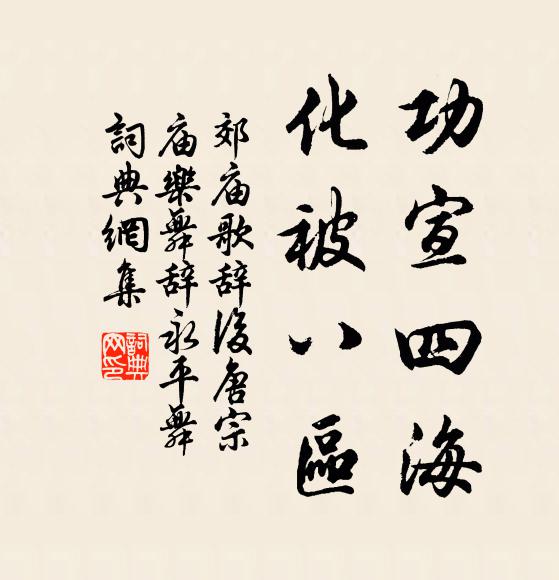 功宣四海
化被八區
郊庙歌辞後唐宗
庙樂舞辞永平舞
詞典網集
詞典
网印